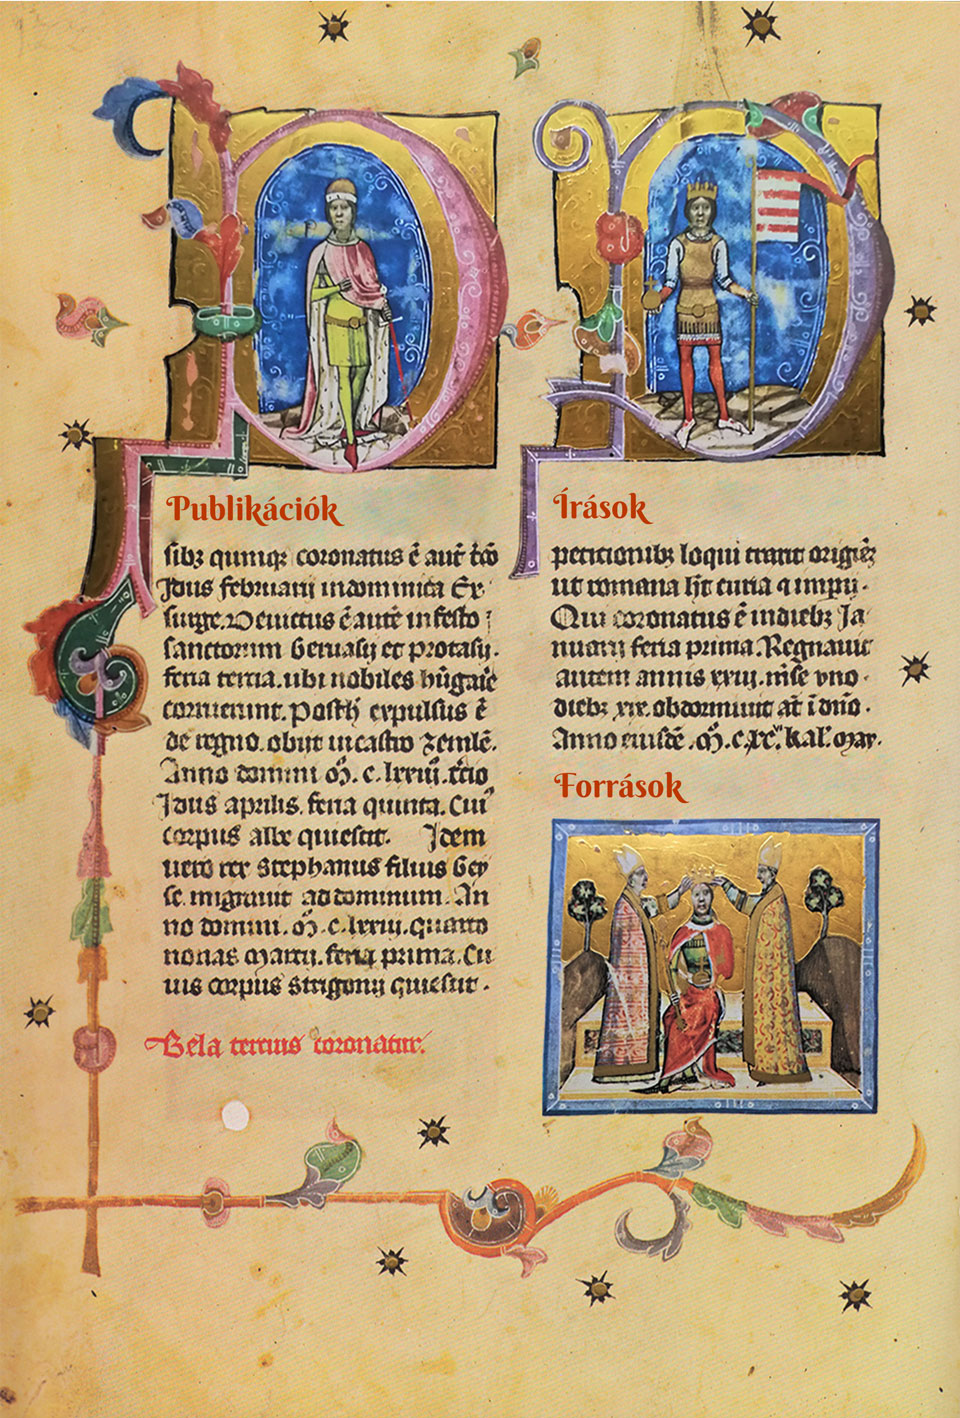 Publikációk
sibꝫ quinqꝫ coronatus ē aut̄
Idus februarii in dominica Ex
surge. Deuictus ē autē in festo
sanctorum Geruasij et protasij.
feria tercia. ubi nobiles hūgarie
corruerunt. Post h̄ expulsus ē
de regno. obijt in castro zemlē.
Anno domini m̊. c. lxxiii. t̄cio
Idus aprilis. feria quinta. Cui'
corpus albe quiescit. Idem
uero rex Stephanus filius Gey
se. migrauit ad dominum. An
no domini. m̊. c. lxxiii. quarto
nonas Marcii. feria prima. Cu
ius corpus Strigonij quiescit.
Bela tercius coronatur.
Írások
peticionibꝫ loqui
ut romana h̄t curia
Qui coronatus ē in diebꝫ Ja
nuarij feria prima. Regnauit
autem annis xxiii. mēse vno.
diebꝫ xix. obdormiuit at̄ ī dn̄o.
Anno eiusdē. m̊. c. xc. kal. may.
Források